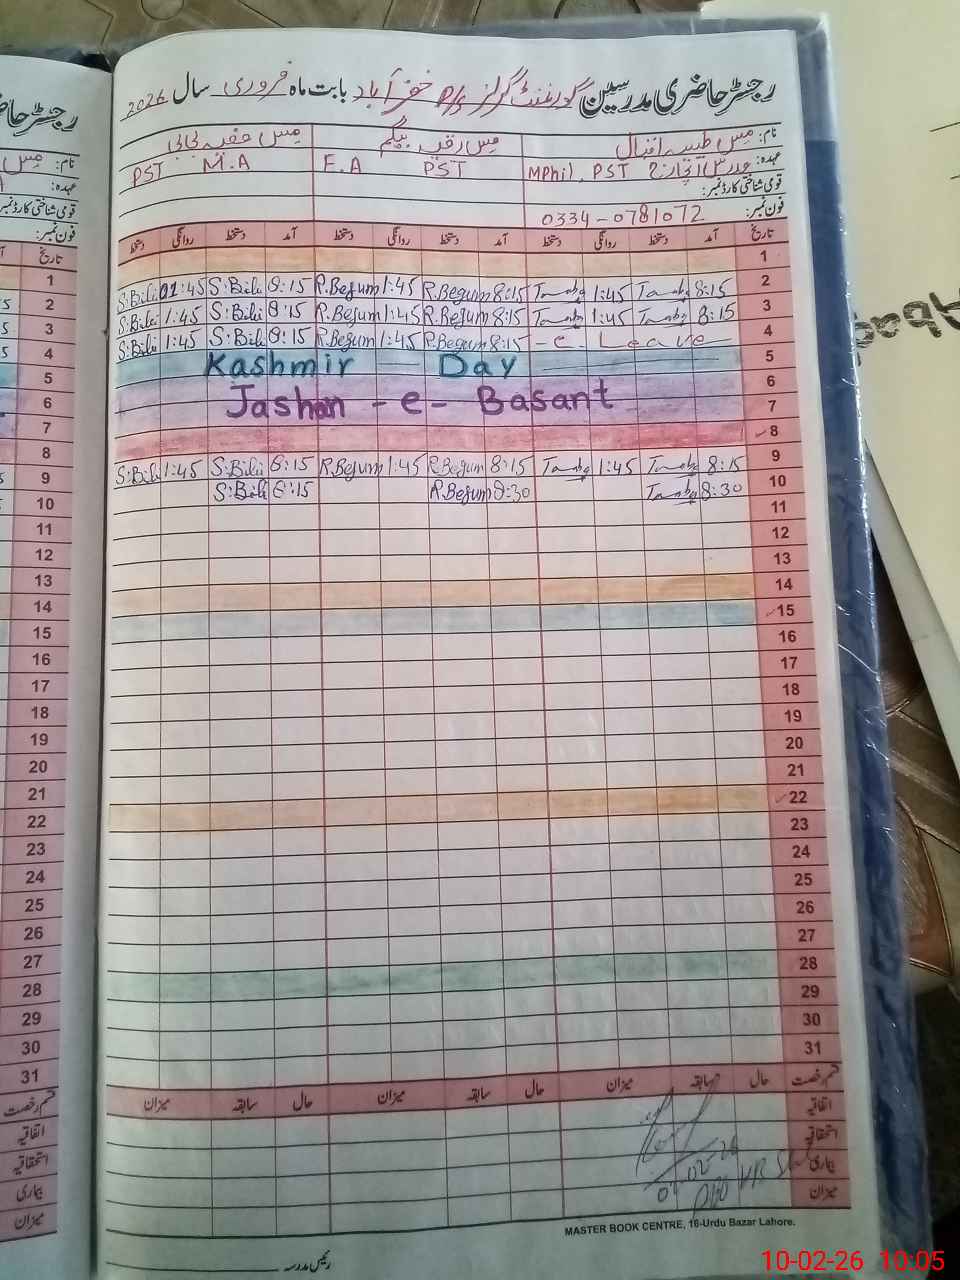 رجسٹر حاضری مدرسین گورنمنٹ گرلز P/S خضر آباد بابت ماہ فروری سال 2026
نام: مس طیبہ اقبال مس رقیہ بیگم مس صفیہ بی بی
عہدہ: مدرس انچارج MPhil, PST F.A PST PST M.A
قومی شناختی کارڈ نمبر:
فون نمبر: 0334-0781072
تاریخ آمد دستخط روانگی دستخط آمد دستخط روانگی دستخط آمد دستخط روانگی دستخط
1
S:Bibi 01:45 S:Bibi 8:15 R.Begum 1:45 R.Begum 8:15 1:45 8:15 2
S:Bibi 1:45 S:Bibi 8:15 R.Begum 1:45 R.Begum 8:15 1:45 8:15 3
S:Bibi 1:45 S:Bibi 8:15 R.Begum 1:45 R.Begum 8:15 - C. Leave 4
Kashmir — Day 5
6
Jashan - e - Basant 7
8
S:Bibi 1:45 S:Bibi 8:15 R.Begum 1:45 R.Begum 8:15 1:45 8:15 9
S:Bibi 8:15 R.Begum 8:30 8:30 10
11
12
13
14
15
16
17
18
19
20
21
22
23
24
25
26
27
28
29
30
31
قسم رخصت حال سابقہ میزان حال سابقہ میزان حال سابقہ میزان
اتفاقیہ
استحقاقیہ
بیماری
میزان
MASTER BOOK CENTRE, 16-Urdu Bazar Lahore.
رئیس مدرسہ
رجسٹر
نام:
عہدہ:
قومی شناختی کارڈ نمبر
فون نمبر:
تاریخ
1
2
3
4
5
6
7
8
9
10
11
12
13
14
15
16
17
18
19
20
21
22
23
24
25
26
27
28
29
30
31
قسم رخصت
اتفاقیہ
استحقاقیہ
بیماری
میزان
10-02-26 10:05